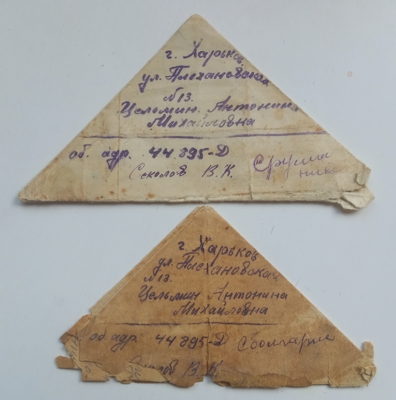 г. Харьков
ул. Плехановская
№13.
Цельмин. Антонина
Михайловна
об. адр. 44395-Д
Соколов В. К.
г. Харьков
ул. Плехановская
№ 13.
Цельмин Антонина
Михайловна
об. адр. 44395-Д С болгарие
В К